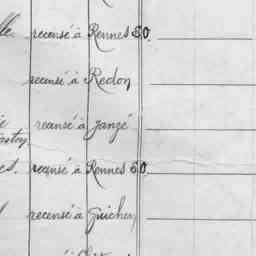 lle recensé à Rennes S.O.
recensé à Redon
recensé à Janzé
Gaston
es. recensé à Rennes S.O.
recensé à Guichen